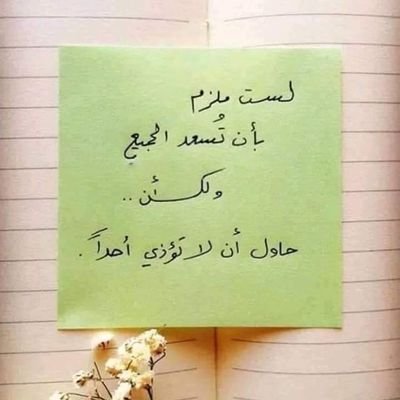 لست ملزم
بأن تُسعد الجميع
ولكن ..
حاول أن لا تؤذي أحداً .